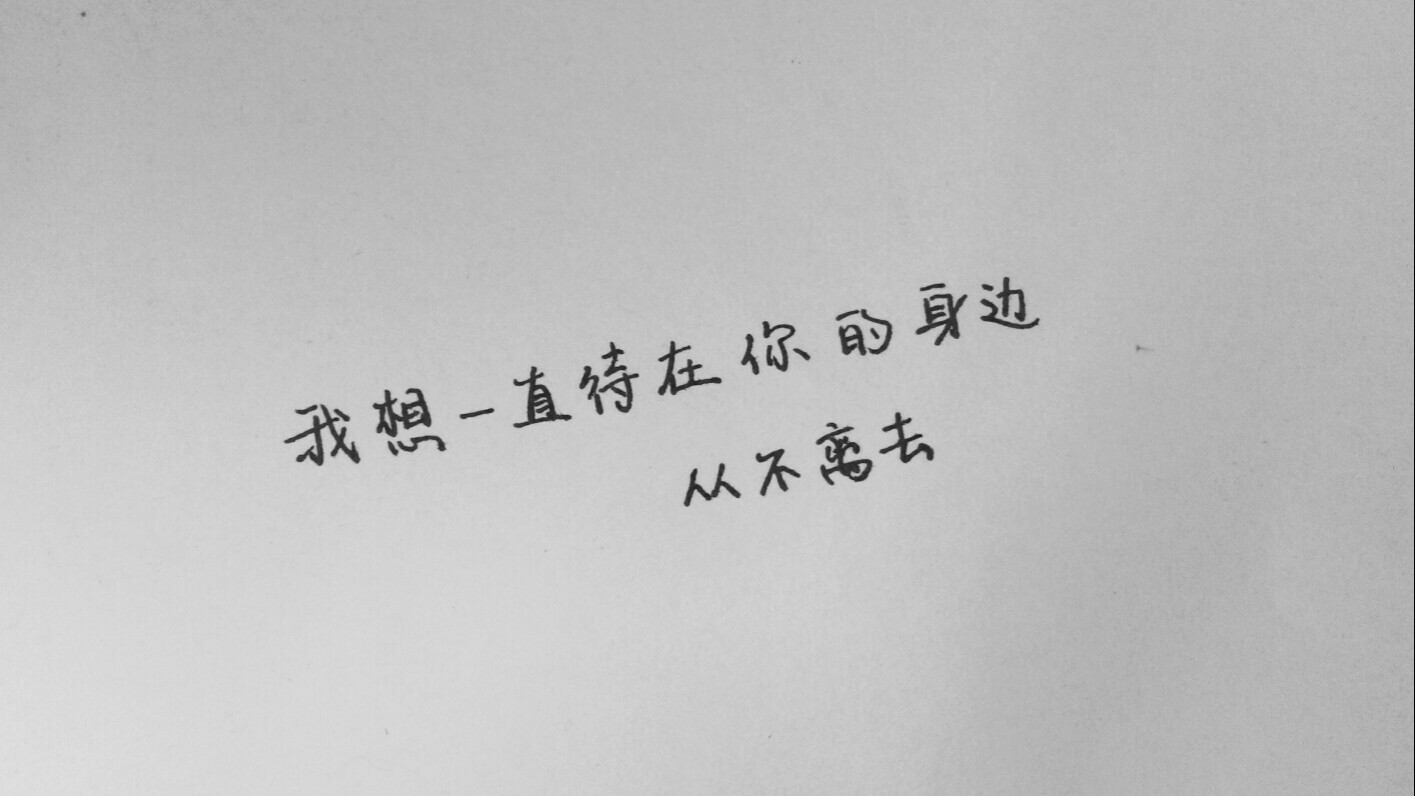 我想一直待在你的身边
从不离去